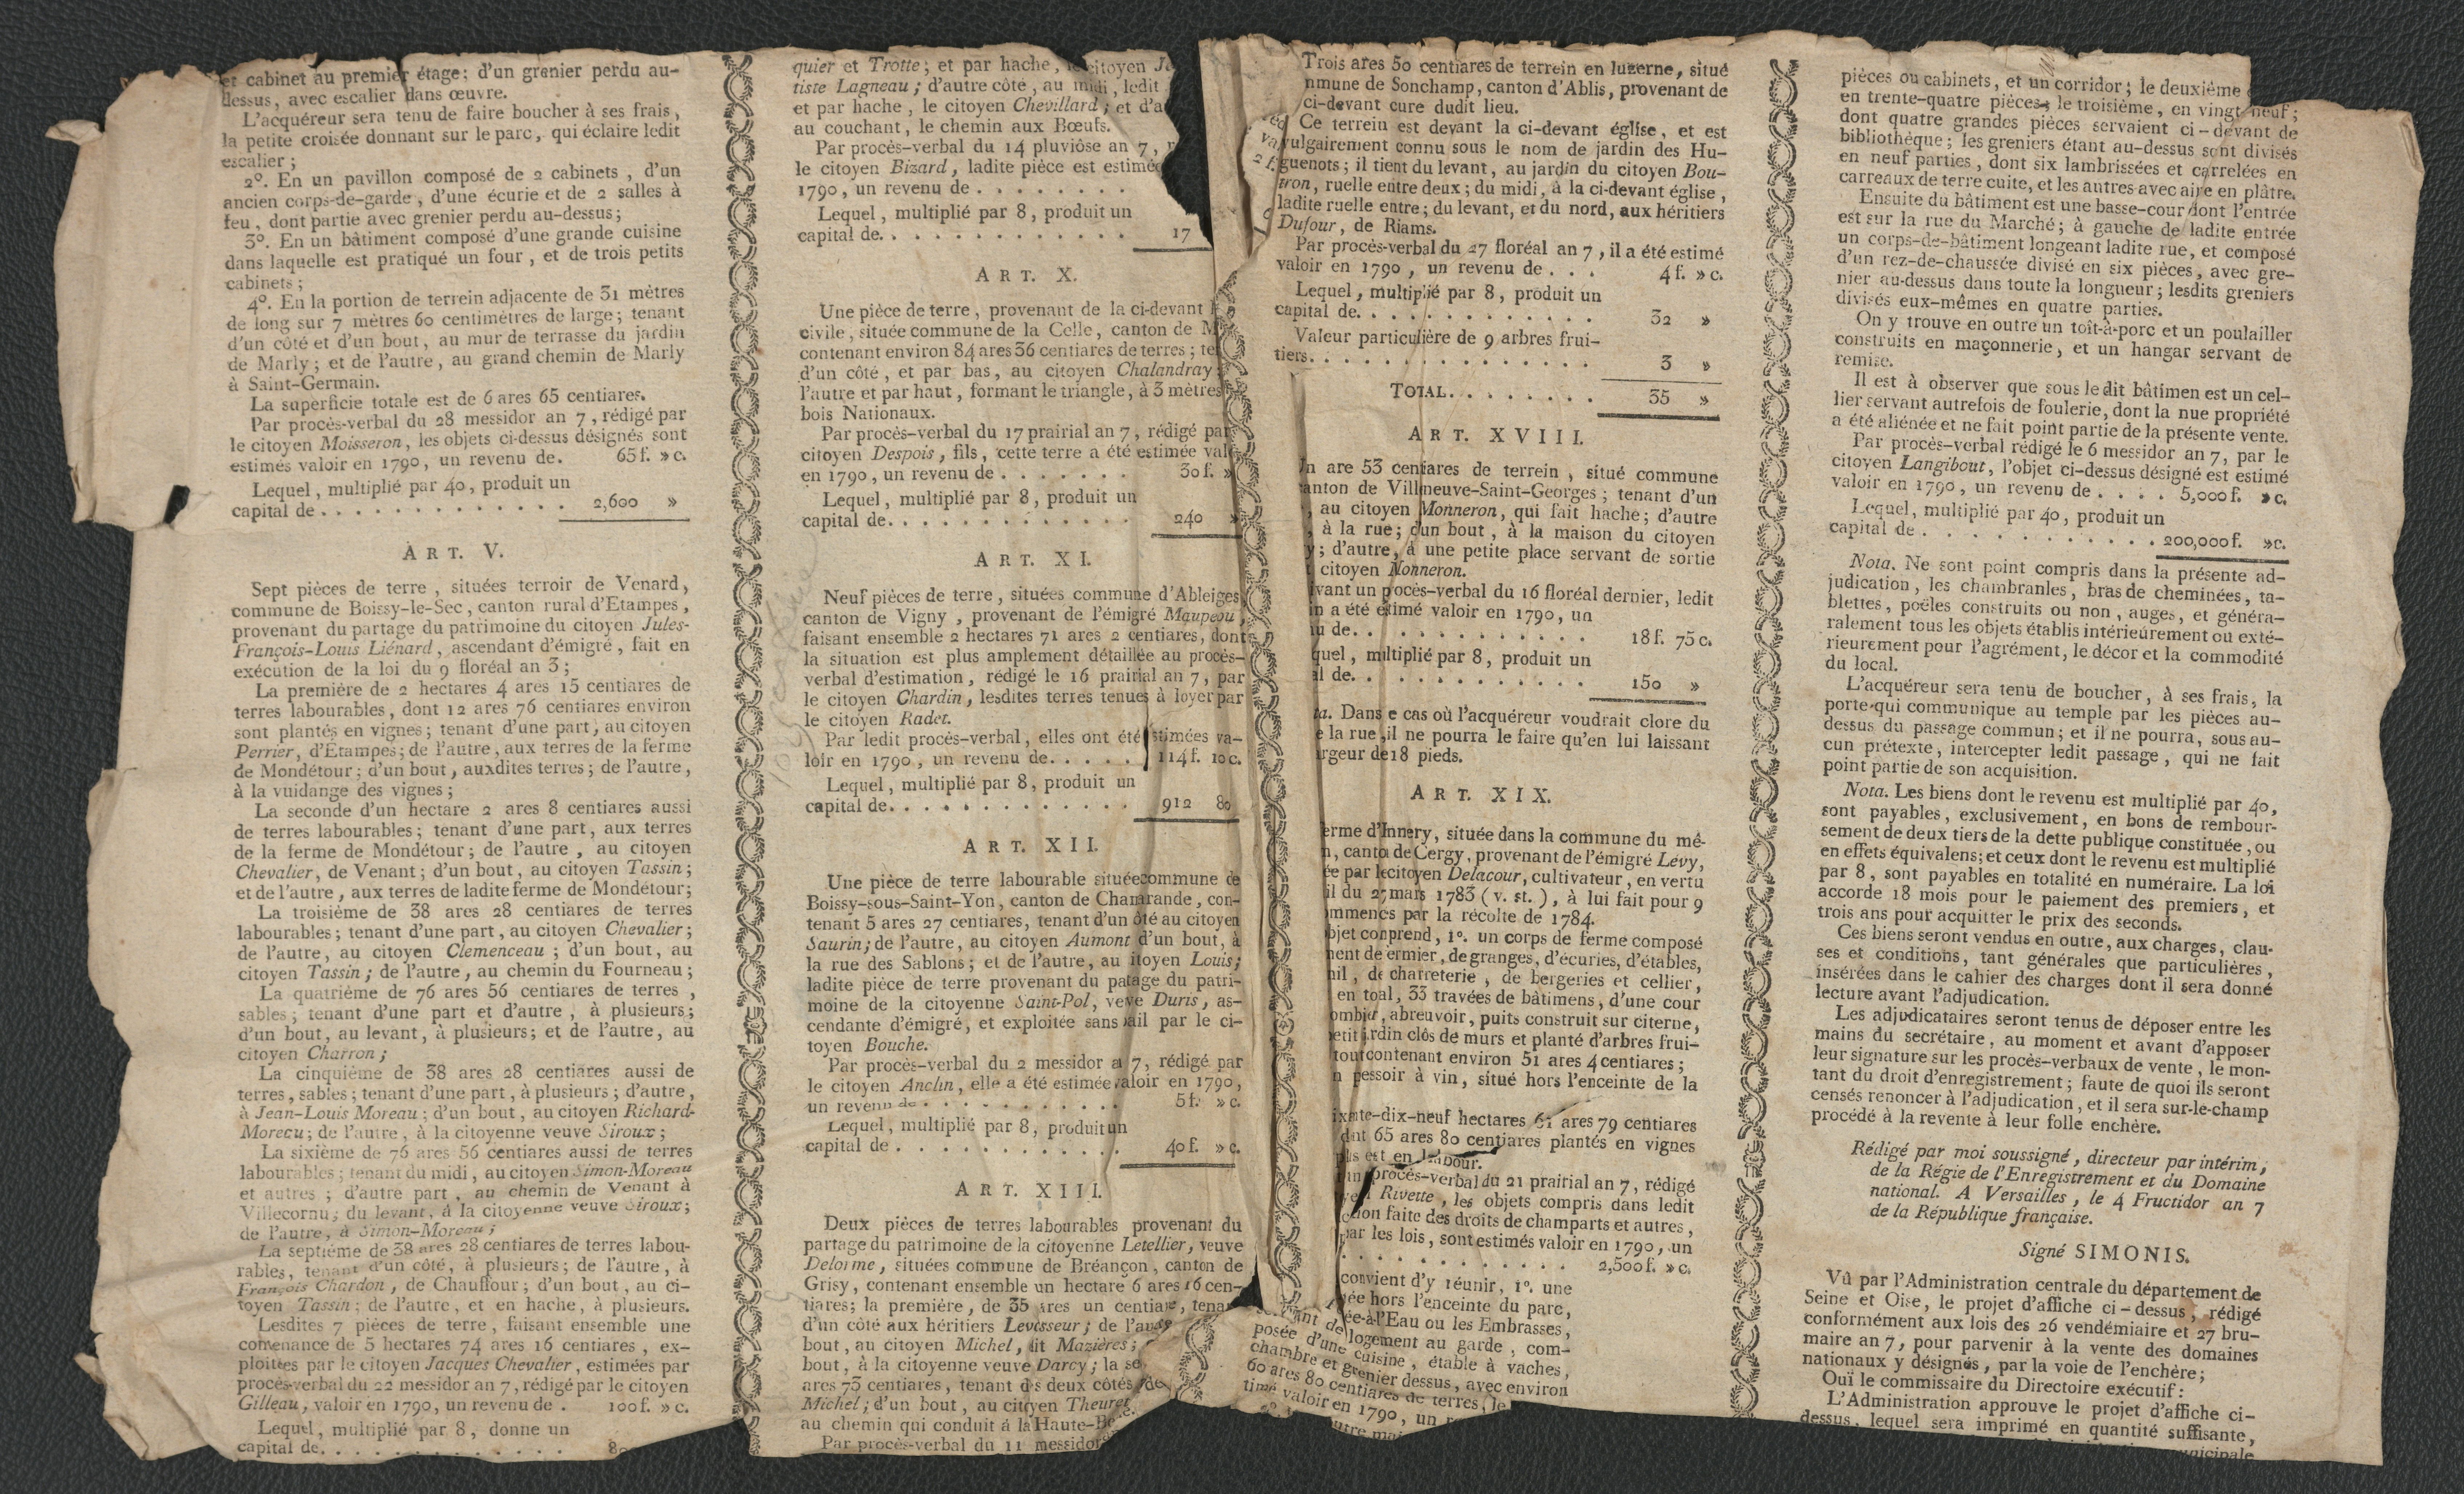 et cabinet au premier étage; d'un grenier perdu au-
dessus, avec escalier dans œuvre.
L'acquéreur sera tenu de faire boucher à ses frais,
la petite croisée donnant sur le parc, qui éclaire ledit
escalier;
2°. En un pavillon composé de 2 cabinets, d'un
ancien corps-de-garde, d'une écurie et de 2 salles à
feu, dont partie avec grenier perdu au-dessus;
3°. En un bâtiment composé d'une grande cuisine
dans laquelle est pratiqué un four, et de trois petits
cabinets;
4°. En la portion de terrein adjacente de 31 mètres
de long sur 7 mètres 60 centimètres de large; tenant
d'un côté et d'un bout, au mur de terrasse du jardin
de Marly; et de l'autre, au grand chemin de Marly
à Saint-Germain.
La superficie totale est de 6 ares 65 centiares.
Par procès-verbal du 28 messidor an 7, rédigé par
le citoyen Moisseron, les objets ci-dessus désignés sont
estimés valoir en 1790, un revenu de. 65 f. » c.
Lequel, multiplié par 40, produit un
capital de . . . . . . . . . . . . . 2,600 »
ART. V.
Sept pièces de terre, situées terroir de Venard,
commune de Boissy-le-Sec, canton rural d'Etampes,
provenant du partage du patrimoine du citoyen Jules-
François-Louis Liénard, ascendant d'émigré, fait en
exécution de la loi du 9 floréal an 3;
La première de 2 hectares 4 ares 15 centiares de
terres labourables, dont 12 ares 76 centiares environ
sont plantés en vignes; tenant d'une part, au citoyen
Perrier, d'Etampes; de l'autre, aux terres de la ferme
de Mondétour; d'un bout, auxdites terres; de l'autre,
à la vuidange des vignes;
La seconde d'un hectare 2 ares 8 centiares aussi
de terres labourables; tenant d'une part, aux terres
de la ferme de Mondétour; de l'autre, au citoyen
Chevalier, de Venant; d'un bout, au citoyen Tassin;
et de l'autre, aux terres de ladite ferme de Mondétour;
La troisième de 38 ares 28 centiares de terres
labourables; tenant d'une part, au citoyen Chevalier;
de l'autre, au citoyen Clemenceau; d'un bout, au
citoyen Tassin; de l'autre, au chemin du Fourneau;
La quatrième de 76 ares 56 centiares de terres,
sables; tenant d'une part et d'autre, à plusieurs;
d'un bout, au levant, à plusieurs; et de l'autre, au
citoyen Charron;
La cinquième de 38 ares 28 centiares aussi de
terres, sables; tenant d'une part, à plusieurs; d'autre,
à Jean-Louis Moreau; d'un bout, au citoyen Richard-
Moreau; de l'autre, à la citoyenne veuve Siroux;
La sixième de 76 ares 56 centiares aussi de terres
labourables; tenant du midi, au citoyen Simon-Moreau
et autres; d'autre part, au chemin de Venant à
Villecornu; du levant, à la citoyenne veuve Siroux;
de l'autre, à Simon-Moreau;
La septième de 38 ares 28 centiares de terres labou-
rables, tenant d'un côté, à plusieurs; de l'autre, à
François Chardon, de Chauffour; d'un bout, au ci-
toyen Tassin; de l'autre, et en hache, à plusieurs.
Lesdites 7 pièces de terre, faisant ensemble une
contenance de 5 hectares 74 ares 16 centiares, ex-
ploitées par le citoyen Jacques Chevalier, estimées par
procès-verbal du 22 messidor an 7, rédigé par le citoyen
Gilleau, valoir en 1790, un revenu de . 100 f. » c.
Lequel, multiplié par 8, donne un
capital de. . . . . . . . . . . . .
quier et Trotte; et par hache, citoyen
tiste Lagneau; d'autre côté, au midi, ledit
et par hache, le citoyen Chevillard; et d'a
au couchant, le chemin aux Bœufs.
Par procès-verbal du 14 pluviôse an 7,
le citoyen Bizard, ladite pièce est estimée
1790, un revenu de . . . . . . . .
Lequel, multiplié par 8, produit un
capital de. . . . . . . . . . . . . 17
ART. X.
Une pièce de terre, provenant de la ci-devant
civile, située commune de la Celle, canton de M
contenant environ 84 ares 36 centiares de terres; te
d'un côté, et par bas, au citoyen Chalandray;
l'autre et par haut, formant le triangle, à 3 mètres
bois Nationaux.
Par procès-verbal du 17 prairial an 7, rédigé par
citoyen Despois, fils, cette terre a été estimée val
en 1790, un revenu de . . . . . . . 30 f. »
Lequel, multiplié par 8, produit un
capital de. . . . . . . . . . . . . 240 »
ART. XI.
Neuf pièces de terre, situées commune d'Ableiges,
canton de Vigny, provenant de l'émigré Maupeou,
faisant ensemble 2 hectares 71 ares 2 centiares, dont
la situation est plus amplement détaillée au procès-
verbal d'estimation, rédigé le 16 prairial an 7, par
le citoyen Chardin, lesdites terres tenues à loyer par
le citoyen Radet.
Par ledit procès-verbal, elles ont été stimées va-
loir en 1790, un revenu de. . . . . 114 f. 10 c.
Lequel, multiplié par 8, produit un
capital de. . . . . . . . . . . . . 912 80
ART. XII.
Une pièce de terre labourable située commune de
Boissy-sous-Saint-Yon, canton de Chamarande, con-
tenant 5 ares 27 centiares, tenant d'un ôté au citoyen
Saurin; de l'autre, au citoyen Aumont d'un bout, à
la rue des Sablons; et de l'autre, au itoyen Louis;
ladite pièce de terre provenant du patage du patri-
moine de la citoyenne Saint-Pol, veve Duris, as-
cendante d'émigré, et exploitée sans ail par le ci-
toyen Bouche.
Par procès-verbal du 2 messidor a 7, rédigé par
le citoyen Anclin, elle a été estimée valoir en 1790,
un revenu de . . . . . . . . . . . 5 f. » c.
Lequel, multiplié par 8, produit un
capital de . . . . . . . . . . . . 40 f. » c.
ART. XIII.
Deux pièces de terres labourables provenant du
partage du patrimoine de la citoyenne Letellier, veuve
Delorme, situées commune de Bréançon, canton de
Grisy, contenant ensemble un hectare 6 ares 16 cen-
tiares; la première, de 35 ares un centiare, tena
d'un côté aux héritiers Levesseur; de l'au
bout, au citoyen Michel, dit Mazières;
bout, à la citoyenne veuve Darcy; la se
ares 73 centiares, tenant des deux côtés, de
Michel; d'un bout, au citoyen Theuret
au chemin qui conduit à la Haute-
Par procès-verbal du 11 messidor
Trois ares 50 centiares de terrein en luzerne, situé
mmune de Sonchamp, canton d'Ablis, provenant de
ci-devant cure dudit lieu.
Ce terrein est devant la ci-devant église, et est
vulgairement connu sous le nom de jardin des Hu-
guenots; il tient du levant, au jardin du citoyen Bou-
tron, ruelle entre deux; du midi, à la ci-devant église,
ladite ruelle entre; du levant, et du nord, aux héritiers
Dufour, de Riams.
Par procès-verbal du 27 floréal an 7, il a été estimé
valoir en 1790, un revenu de . . . 4 f. » c.
Lequel, multiplié par 8, produit un
capital de. . . . . . . . . . . . . 32 »
Valeur particulière de 9 arbres frui-
tiers. . . . . . . . . . . . . . . 3 »
TOTAL. . . . . . . . 35 »
ART. XVIII.
Un are 53 centiares de terrein, situé commune
canton de Villneuve-Saint-Georges; tenant d'un
, au citoyen Monneron, qui fait hache; d'autre
, à la rue; d'un bout, à la maison du citoyen
; d'autre, à une petite place servant de sortie
citoyen Monneron.
ivant un pocès-verbal du 16 floréal dernier, ledit
in a été estimé valoir en 1790, un
nu de. . . . . . . . . . . . 18 f. 75 c.
quel, multiplié par 8, produit un
al de. . . . . . . . . . . . 150 »
ta. Dans e cas où l'acquéreur voudrait clore du
e la rue, il ne pourra le faire qu'en lui laissant
argeur de 18 pieds.
ART. XIX.
erme d'Innery, située dans la commune du mê-
, canton de Cergy, provenant de l'émigré Lévy,
ée par le citoyen Delacour, cultivateur, en vertu
il du 27 mars 1783 (v. st.), à lui fait pour 9
ommencs par la récolte de 1784.
objet comprend, 1°. un corps de ferme composé
ment de ermier, de granges, d'écuries, d'étables,
nil, de charreterie, de bergeries et cellier,
en toal, 33 travées de bâtimens, d'une cour
ombier, abreuvoir, puits construit sur citerne,
petit jrdin clôs de murs et planté d'arbres frui-
tout contenant environ 51 ares 4 centiares;
n pessoir à vin, situé hors l'enceinte de la
ixante-dix-neuf hectares 61 ares 79 centiares
dont 65 ares 80 centiares plantés en vignes
plus est en labour.
un procès-verbal du 21 prairial an 7, rédigé
yen Rivette, les objets compris dans ledit
ction faite des droits de champarts et autres,
par les lois, sont estimés valoir en 1790, un
. . . . . . . . . . . 2,500 f. » c.
convient d'y réunir, 1°. une
uée hors l'enceinte du parc,
ée-à-l'Eau ou les Embrasses,
ant de logement au garde, com-
posée d'une cuisine, étable à vaches,
chambre et grenier dessus, avec environ
60 ares 80 centiares de terres, le
timé valoir en 1790, un
pièces ou cabinets, et un corridor; le deuxième
en trente-quatre pièces, le troisième, en vingt-neuf;
dont quatre grandes pièces servaient ci-devant de
bibliothèque; les greniers étant au-dessus sont divisés
en neuf parties, dont six lambrissées et carrelées en
carreaux de terre cuite, et les autres avec aire en plâtre.
Ensuite du bâtiment est une basse-cour dont l'entrée
est sur la rue du Marché; à gauche de ladite entrée
un corps-de-bâtiment longeant ladite rue, et composé
d'un rez-de-chaussée divisé en six pièces, avec gre-
nier au-dessus dans toute la longueur; lesdits greniers
divisés eux-mêmes en quatre parties.
On y trouve en outre un toît-à-porc et un poulailler
construits en maçonnerie, et un hangar servant de
remise.
Il est à observer que sous le dit bâtimen est un cel-
lier servant autrefois de foulerie, dont la nue propriété
a été aliénée et ne fait point partie de la présente vente.
Par procès-verbal rédigé le 6 messidor an 7, par le
citoyen Langibout, l'objet ci-dessus désigné est estimé
valoir en 1790, un revenu de . . . . 5,000 f. » c.
Lequel, multiplié par 40, produit un
capital de . . . . . . . . . . . . 200,000 f. » c.
Nota. Ne sont point compris dans la présente ad-
judication, les chambranles, bras de cheminées, ta-
blettes, poëles construits ou non, auges, et généra-
ralement tous les objets établis intérieurement ou exté-
rieurement pour l'agrément, le décor et la commodité
du local.
L'acquéreur sera tenu de boucher, à ses frais, la
porte qui communique au temple par les pièces au-
dessus du passage commun; et il ne pourra, sous au-
cun prétexte, intercepter ledit passage, qui ne fait
point partie de son acquisition.
Nota. Les biens dont le revenu est multiplié par 40,
sont payables, exclusivement, en bons de rembour-
sement de deux tiers de la dette publique constituée, ou
en effets équivalens; et ceux dont le revenu est multiplié
par 8, sont payables en totalité en numéraire. La loi
accorde 18 mois pour le paiement des premiers, et
trois ans pour acquitter le prix des seconds.
Ces biens seront vendus en outre, aux charges, clau-
ses et conditions, tant générales que particulières,
insérées dans le cahier des charges dont il sera donné
lecture avant l'adjudication.
Les adjudicataires seront tenus de déposer entre les
mains du secrétaire, au moment et avant d'apposer
leur signature sur les procès-verbaux de vente, le mon-
tant du droit d'enregistrement; faute de quoi ils seront
censés renoncer à l'adjudication, et il sera sur-le-champ
procédé à la revente à leur folle enchère.
Rédigé par moi soussigné, directeur par intérim,
de la Régie de l'Enregistrement et du Domaine
national. A Versailles, le 4 Fructidor an 7
de la République française.
Signé SIMONIS.
Vû par l'Administration centrale du département de
Seine et Oise, le projet d'affiche ci-dessus, rédigé
conformément aux lois des 26 vendémiaire et 27 bru-
maire an 7, pour parvenir à la vente des domaines
nationaux y désignés, par la voie de l'enchère;
Ouï le commissaire du Directoire exécutif:
L'Administration approuve le projet d'affiche ci-
dessus, lequel sera imprimé en quantité suffisante,